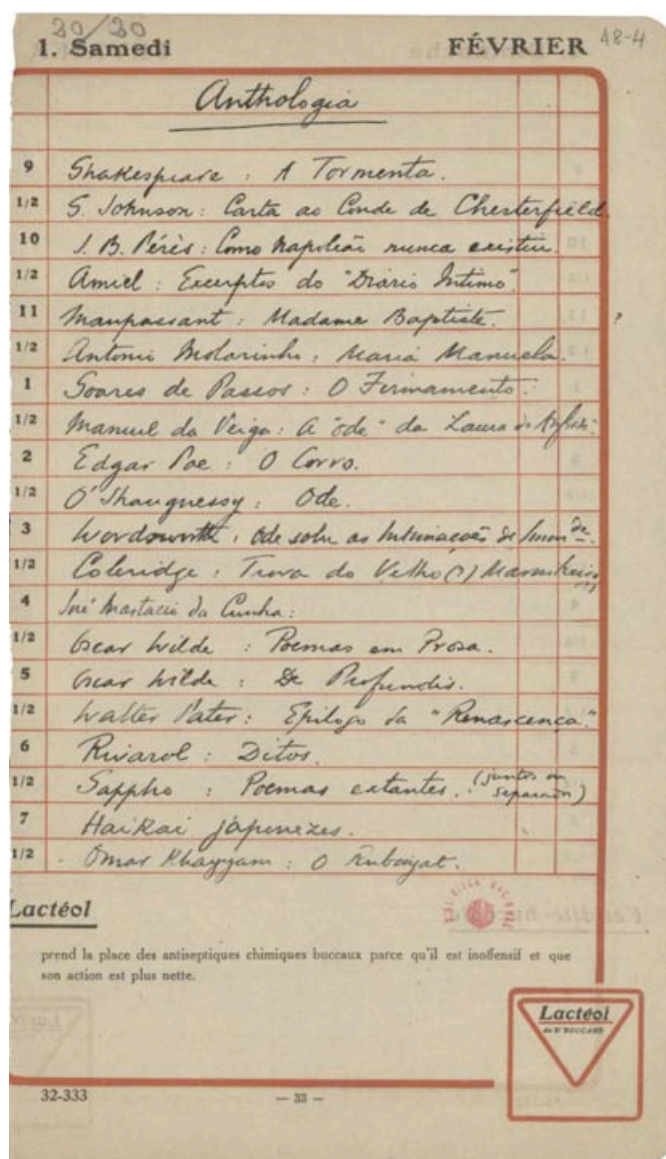 20/20
48-4
1. Samedi FÉVRIER
Anthologia
9 Shakespeare : A Tormenta.
1/2 S. Johnson : Carta ao Conde de Chesterfield.
10 J. B. Pérès : Como Napoleão nunca existiu.
1/2 Amiel : Excerptos do "Diario Intimo".
11 Maupassant : Madame Baptiste. ?
1/2 Antonio Molarinho : Maria Manuela.
1 Soares de Passos : O Firmamento.
1/2 Manuel da Veiga : A "ode" da Laura de
2 Edgar Poe : O Corvo.
1/2 O'Shaugnessy : Ode.
3 Wordsworth : Ode sobre as Intimações de
1/2 Coleridge : Trova do Velho (?) Marinheiro (?)
4 José Anastacio da Cunha :
1/2 Oscar Wilde : Poemas em Prosa.
5 Oscar Wilde : De Profundis.
1/2 Walter Pater : Epilogo da "Renascença."
6 Rivarol : Ditos.
1/2 Sappho : Poemas extantes. (juntos ou separados)
7 Haikai japonezes.
1/2 Omar Khayyam : O Rubaiyat.
Lactéol
prend la place des antiseptiques chimiques buccaux parce qu'il est inoffensif et que
son action est plus nette.
Lactéol
du Dr BOUCARD
32-333 — 33 —